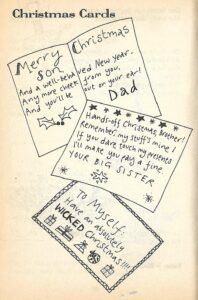 Christmas Cards
Merry Christmas
Son
And a well-behaved New Year.
Any more cheek from you,
And you'll be out on your ear!
Dad
Hands-off Christmas, brother!
Remember, my stuff's mine!
If you dare touch my presents
I'll make you pay a fine.
YOUR BIG SISTER
To Myself:
Have an absolutely
WICKED Christmas!!!!